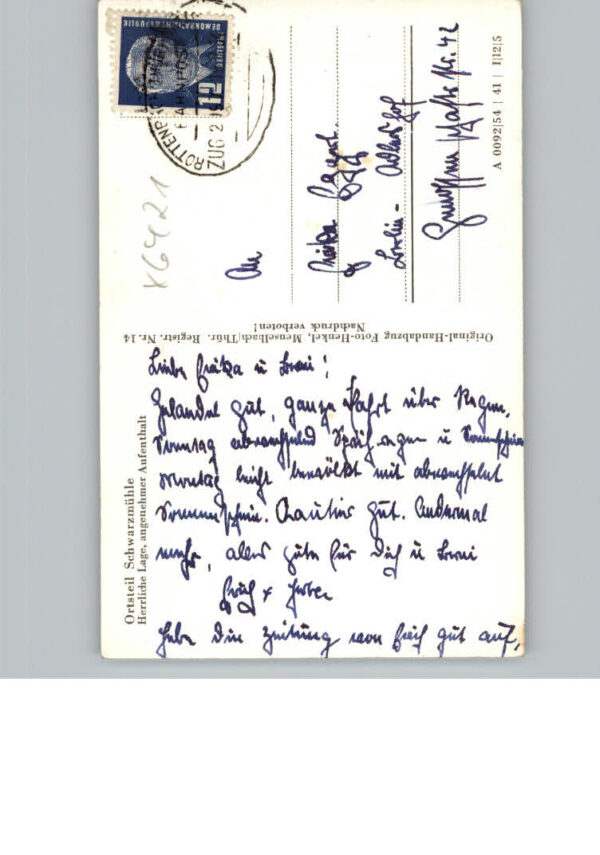 DEUTSCHE
DEMOKRATISCHE REPUBLIK
12
BAHNPOST
ZUG 2
X6421
An
Berlin - Adlershof
Nr. 42
A 0092|54 | 41 | I|12|5
Original-Handabzug Foto-Henkel, Meuselbach/Thür. Registr. Nr. 14
Nachdruck verboten!
Ortsteil Schwarzmühle
Herrliche Lage, angenehmer Aufenthalt
Liebe u
Gelandet gut, ganze Fahrt über Regen,
Sonntag abwechselnd Sprühregen u Sonnenschein
Montag leicht bewölkt mit abwechselnd
Sonnenschein. Quartier gut. Andermal
mehr, alles gute für Dich u
Hebe die Zeitung von Erich gut auf,